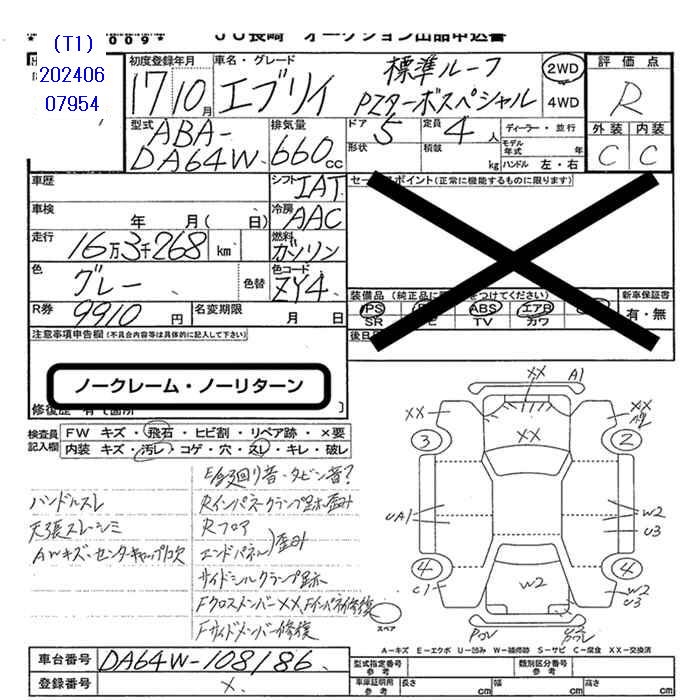 (T1)
202406
07954
009* JU長崎 オークション出品申込書
初度登録年月 車名・グレード
17/10月 エブリイ
標準ルーフ
PZターボスペシャル
2WD
4WD
評価点
R
外装 内装
C C
型式
ABA-
DA64W
排気量
660cc
ドア 5 定員 4人
形状 積載 kg
ディーラー・並行
モデル年式 年
ハンドル 左・右
車歴
シフト IAT
車検 年 月( 日)
冷房 AAC
走行 16万3千268km
燃料 ガソリン
色 グレー 色替
色コード ZY4
R券 9910円 名変期限 月 日
セールスポイント(正常に機能するものに限ります)
新車保証書
有・無
PS ABS エアB
SR TV カワ
注意事項申告欄(不具合内容等は具体的に記入して下さい)
ノークレーム・ノーリターン
検査員記入欄
FW キズ・飛石・ヒビ割・リペア跡・×要
内装 キズ・汚レ・コゲ・穴・スレ・キレ・破レ
E/g廻り音・タービン音?
ハンドルスレ
Rインパネ・クランプ跡歪み
天張スレ・シミ
Rフロア
AWキズ・センターキャップ欠
エンドパネル)歪み
サイドシルクランプ跡
FクロスメンバーXX、Fインパネ修復
Fサイドメンバー修復
XX A1
XX XX
3 XX 2
UA1 W2
U3
4 W2 4
C1 W2
U3
スペア
A-キズ E-エクボ U-凹み W-補修跡 S-サビ C-腐食 XX-交換済
車台番号 DA64W-108186
登録番号 ×
型式指定番号 参考 類別区分番号 参考
車庫証明用 参考 長さ cm 幅 cm 高さ cm